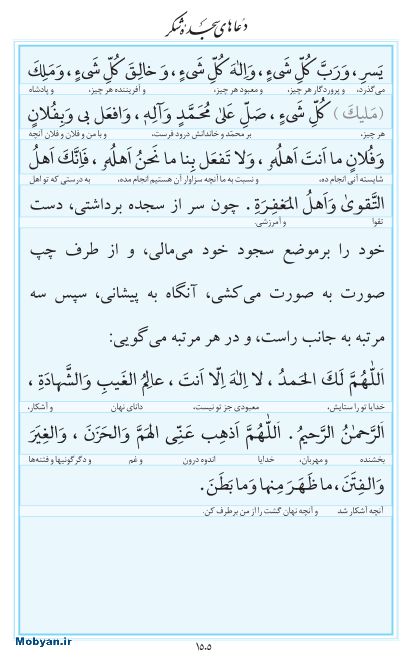 دعاهای سجدهٔ شکر
یَسرِ ، وَرَبَّ کُلِّ شَیءٍ ، وَاِلهَ کُلِّ شَیءٍ ، وَ خالِقَ کُلِّ شَیءٍ ، وَمَلِکَ
می‌گذرد، و پروردگار هر چیز، و معبود هر چیز، و آفریننده هر چیز، و پادشاه
(مَلیکَ) کُلِّ شَیءٍ ، صَلِّ عَلیٰ مُحَمَّدٍ وَآلِهِ ، وَافعَل بی وَبِفُلانٍ
هر چیز، بر محمّد و خاندانش درود فرست، و با من و فلان و فلان آنچه
وَفُلانٍ ما اَنتَ اَهلُهُ ، وَلا تَفعَل بِنا ما نَحنُ اَهلُهُ ، فَاِنَّکَ اَهلُ
شایسته آنی انجام ده، و نسبت به ما آنچه سزاوار آن هستیم انجام مده، به درستی که تو اهل
التَّقویٰ وَاَهلُ المَغفِرَةِ . چون سر از سجده برداشتی، دست
تقوا و آمرزشی.
خود را برموضع سجود خود می‌مالی، و از طرف چپ
صورت به صورت می‌کشی، آنگاه به پیشانی، سپس سه
مرتبه به جانب راست، و در هر مرتبه می‌گویی:
اَللّٰهُمَّ لَکَ الحَمدُ ، لا اِلهَ اِلّا اَنتَ ، عالِمُ الغَیبِ وَالشَّهادَةِ ،
خدایا تو را ستایش، معبودی جز تو نیست، دانای نهان و آشکار،
اَلرَّحمٰنُ الرَّحیمُ . اَللّٰهُمَّ اَذهِب عَنِّی الهَمَّ وَالحَزَنَ ، وَالغِیَرَ
بخشنده و مهربان، خدایا اندوه درون و غم و دگرگونیها و فتنه‌ها
وَالفِتَنَ ، ما ظَهَرَ مِنها وَما بَطَنَ.
آنچه آشکار شد و آنچه نهان گشت را از من برطرف کن.
Mobyan.ir
۱۵۰۵